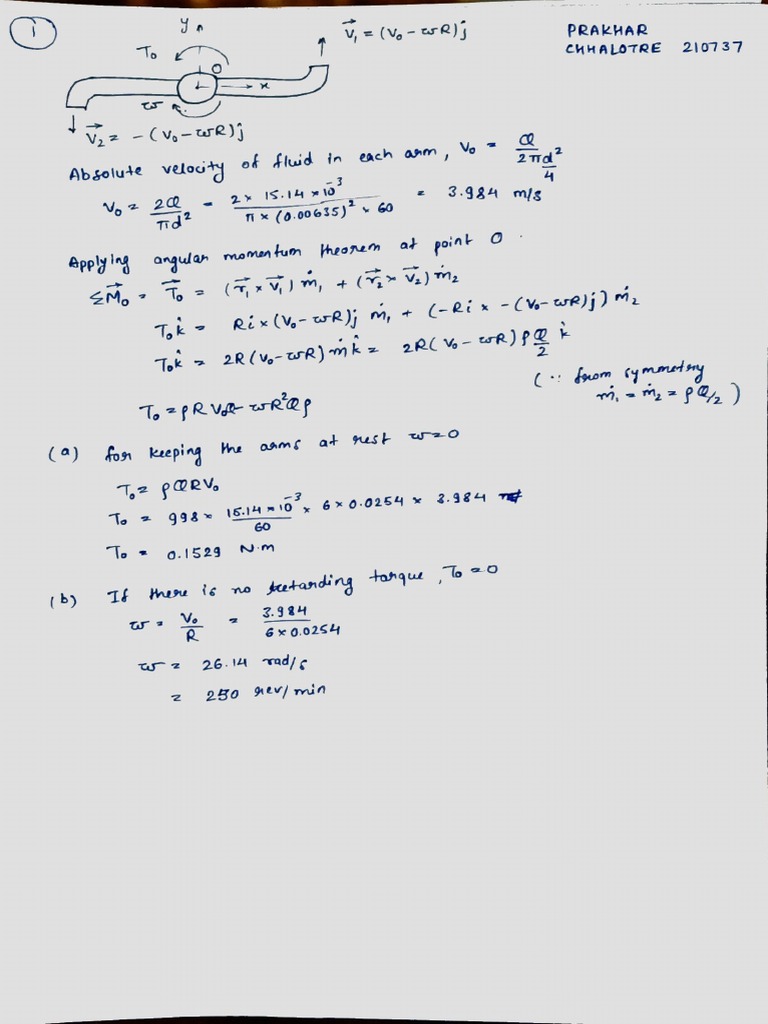 1
PRAKHAR
CHHALOTRE 210737
y
V⃗₁ = (V₀ - ωR)ĵ
T₀
O
x
ω
V⃗₂ = -(V₀ - ωR)ĵ
Absolute velocity of fluid in each arm, V₀ = Q / (2πd²/4)
V₀ = 2Q/πd² = (2 × 15.14 × 10⁻³) / (π × (0.00635)² × 60) = 3.984 m/s
Applying angular momentum theorem at point O.
ΣM⃗₀ = T⃗₀ = (r⃗₁ × V⃗₁) ṁ₁ + (r⃗₂ × V⃗₂) ṁ₂
T₀k̂ = Ri × (V₀ - ωR)j ṁ₁ + (-Ri × -(V₀ - ωR)j) ṁ₂
T₀k̂ = 2R(V₀ - ωR) ṁ k̂ = 2R(V₀ - ωR) ρ Q/2 k̂
(∵ from symmetry
ṁ₁ = ṁ₂ = ρQ/2)
T₀ = ρRV₀Q - ωR²Qρ
(a) for keeping the arms at rest ω = 0
T₀ = ρQRV₀
T₀ = 998 × (15.14 × 10⁻³)/60 × 6 × 0.0254 × 3.984
T₀ = 0.1529 N·m
(b) If there is no retarding torque, T₀ = 0
ω = V₀/R = 3.984/(6 × 0.0254)
ω = 26.14 rad/s
= 250 rev/min